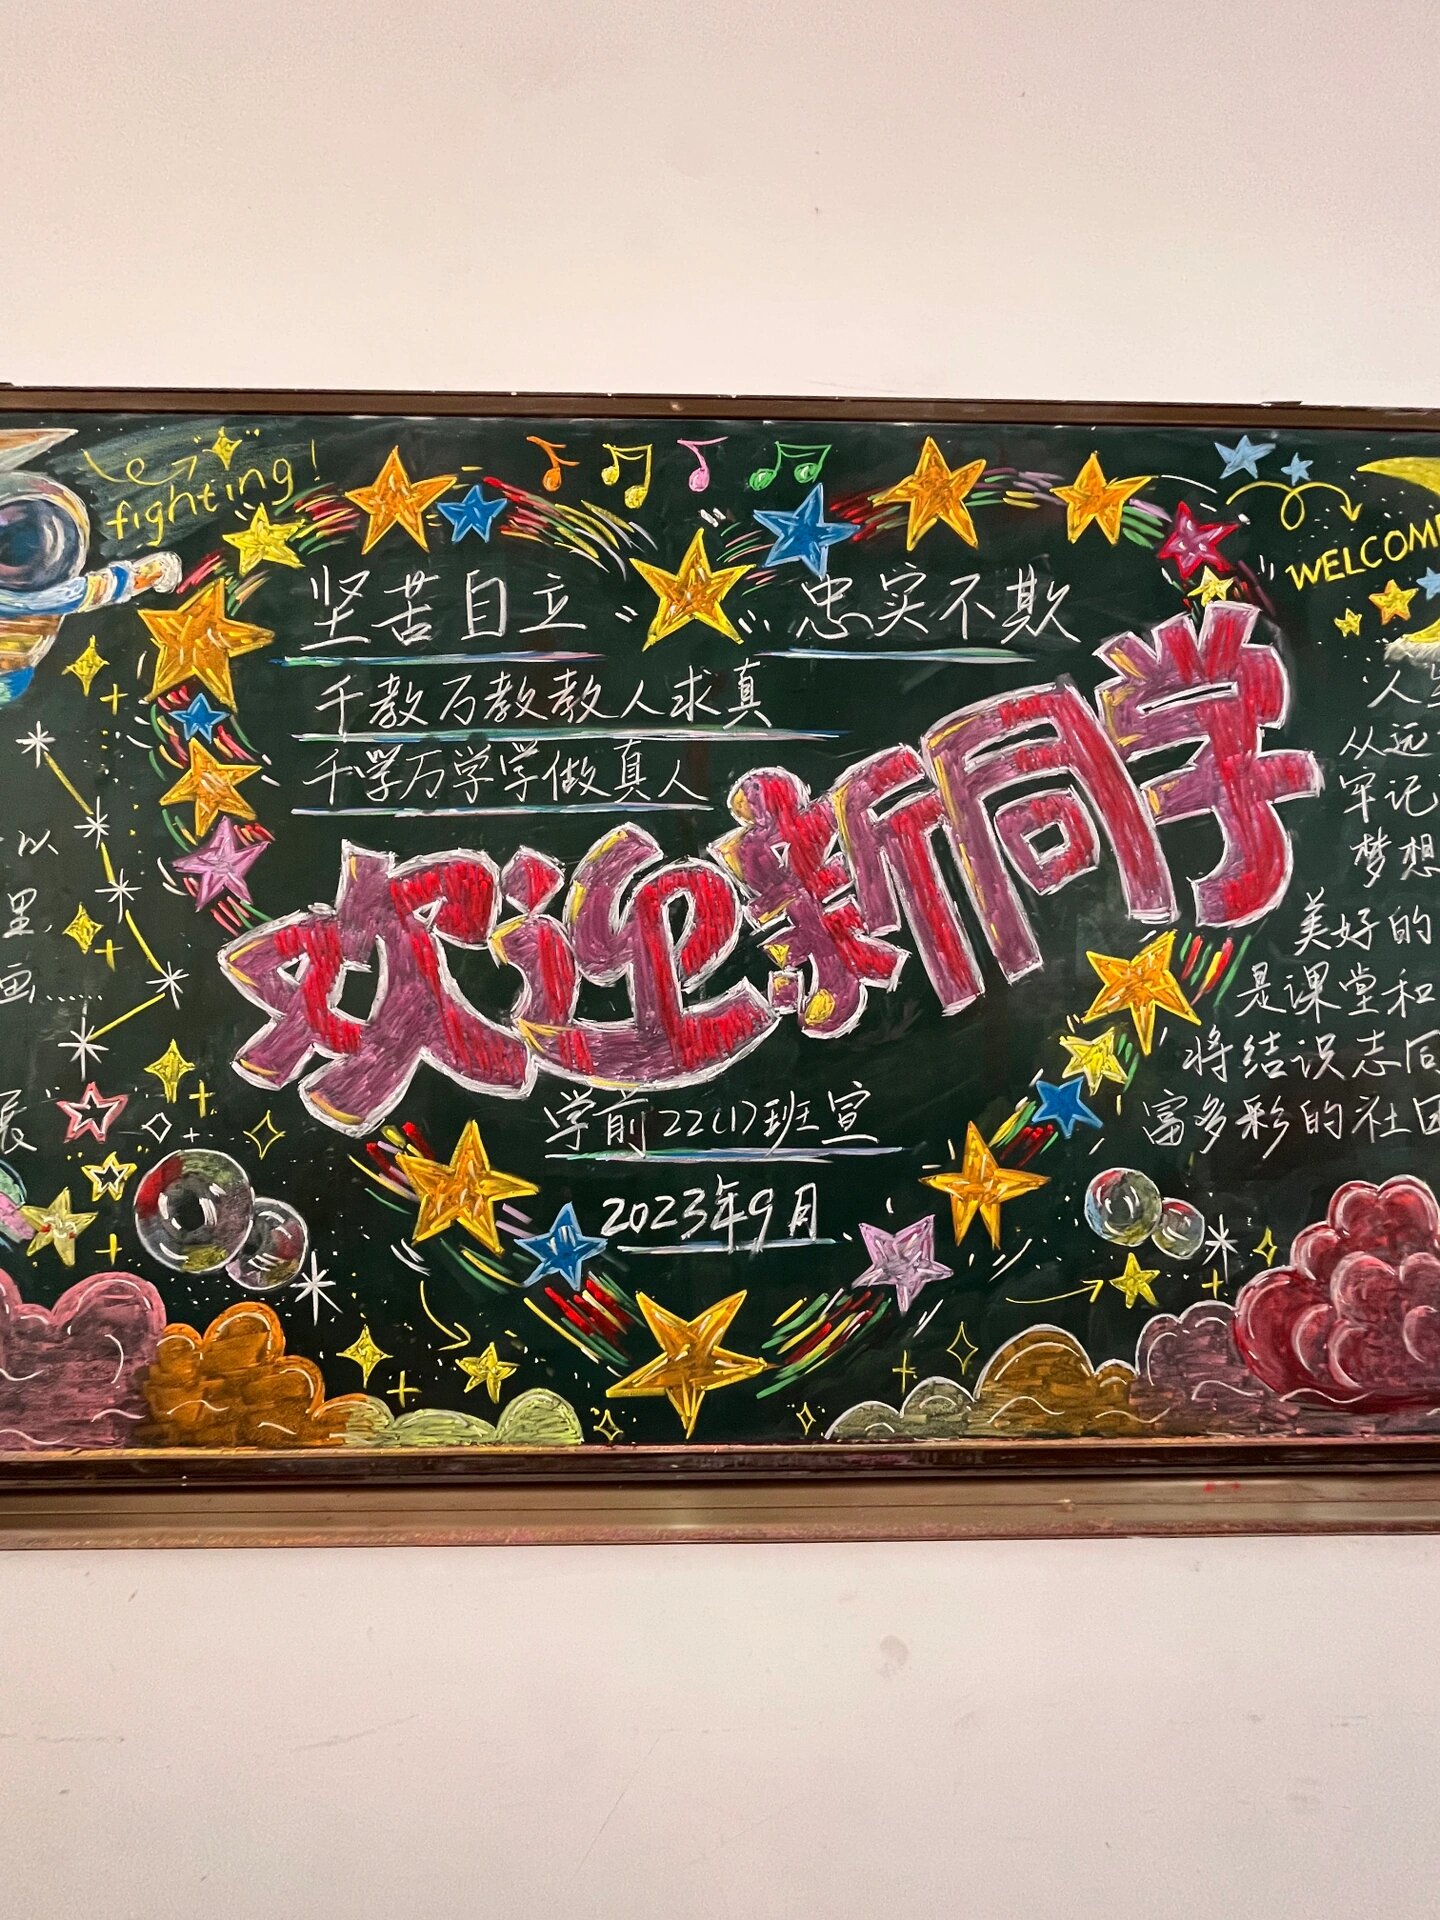 fighting!
WELCOME
坚苦自立 忠实不欺
千教万教教人求真
千学万学学做真人
欢迎新同学
学前22(1)班宣
2023年9月
以
里
画……
展
人
从远
牢记
梦想
美好的
是课堂和
将结识志同
富多彩的社团